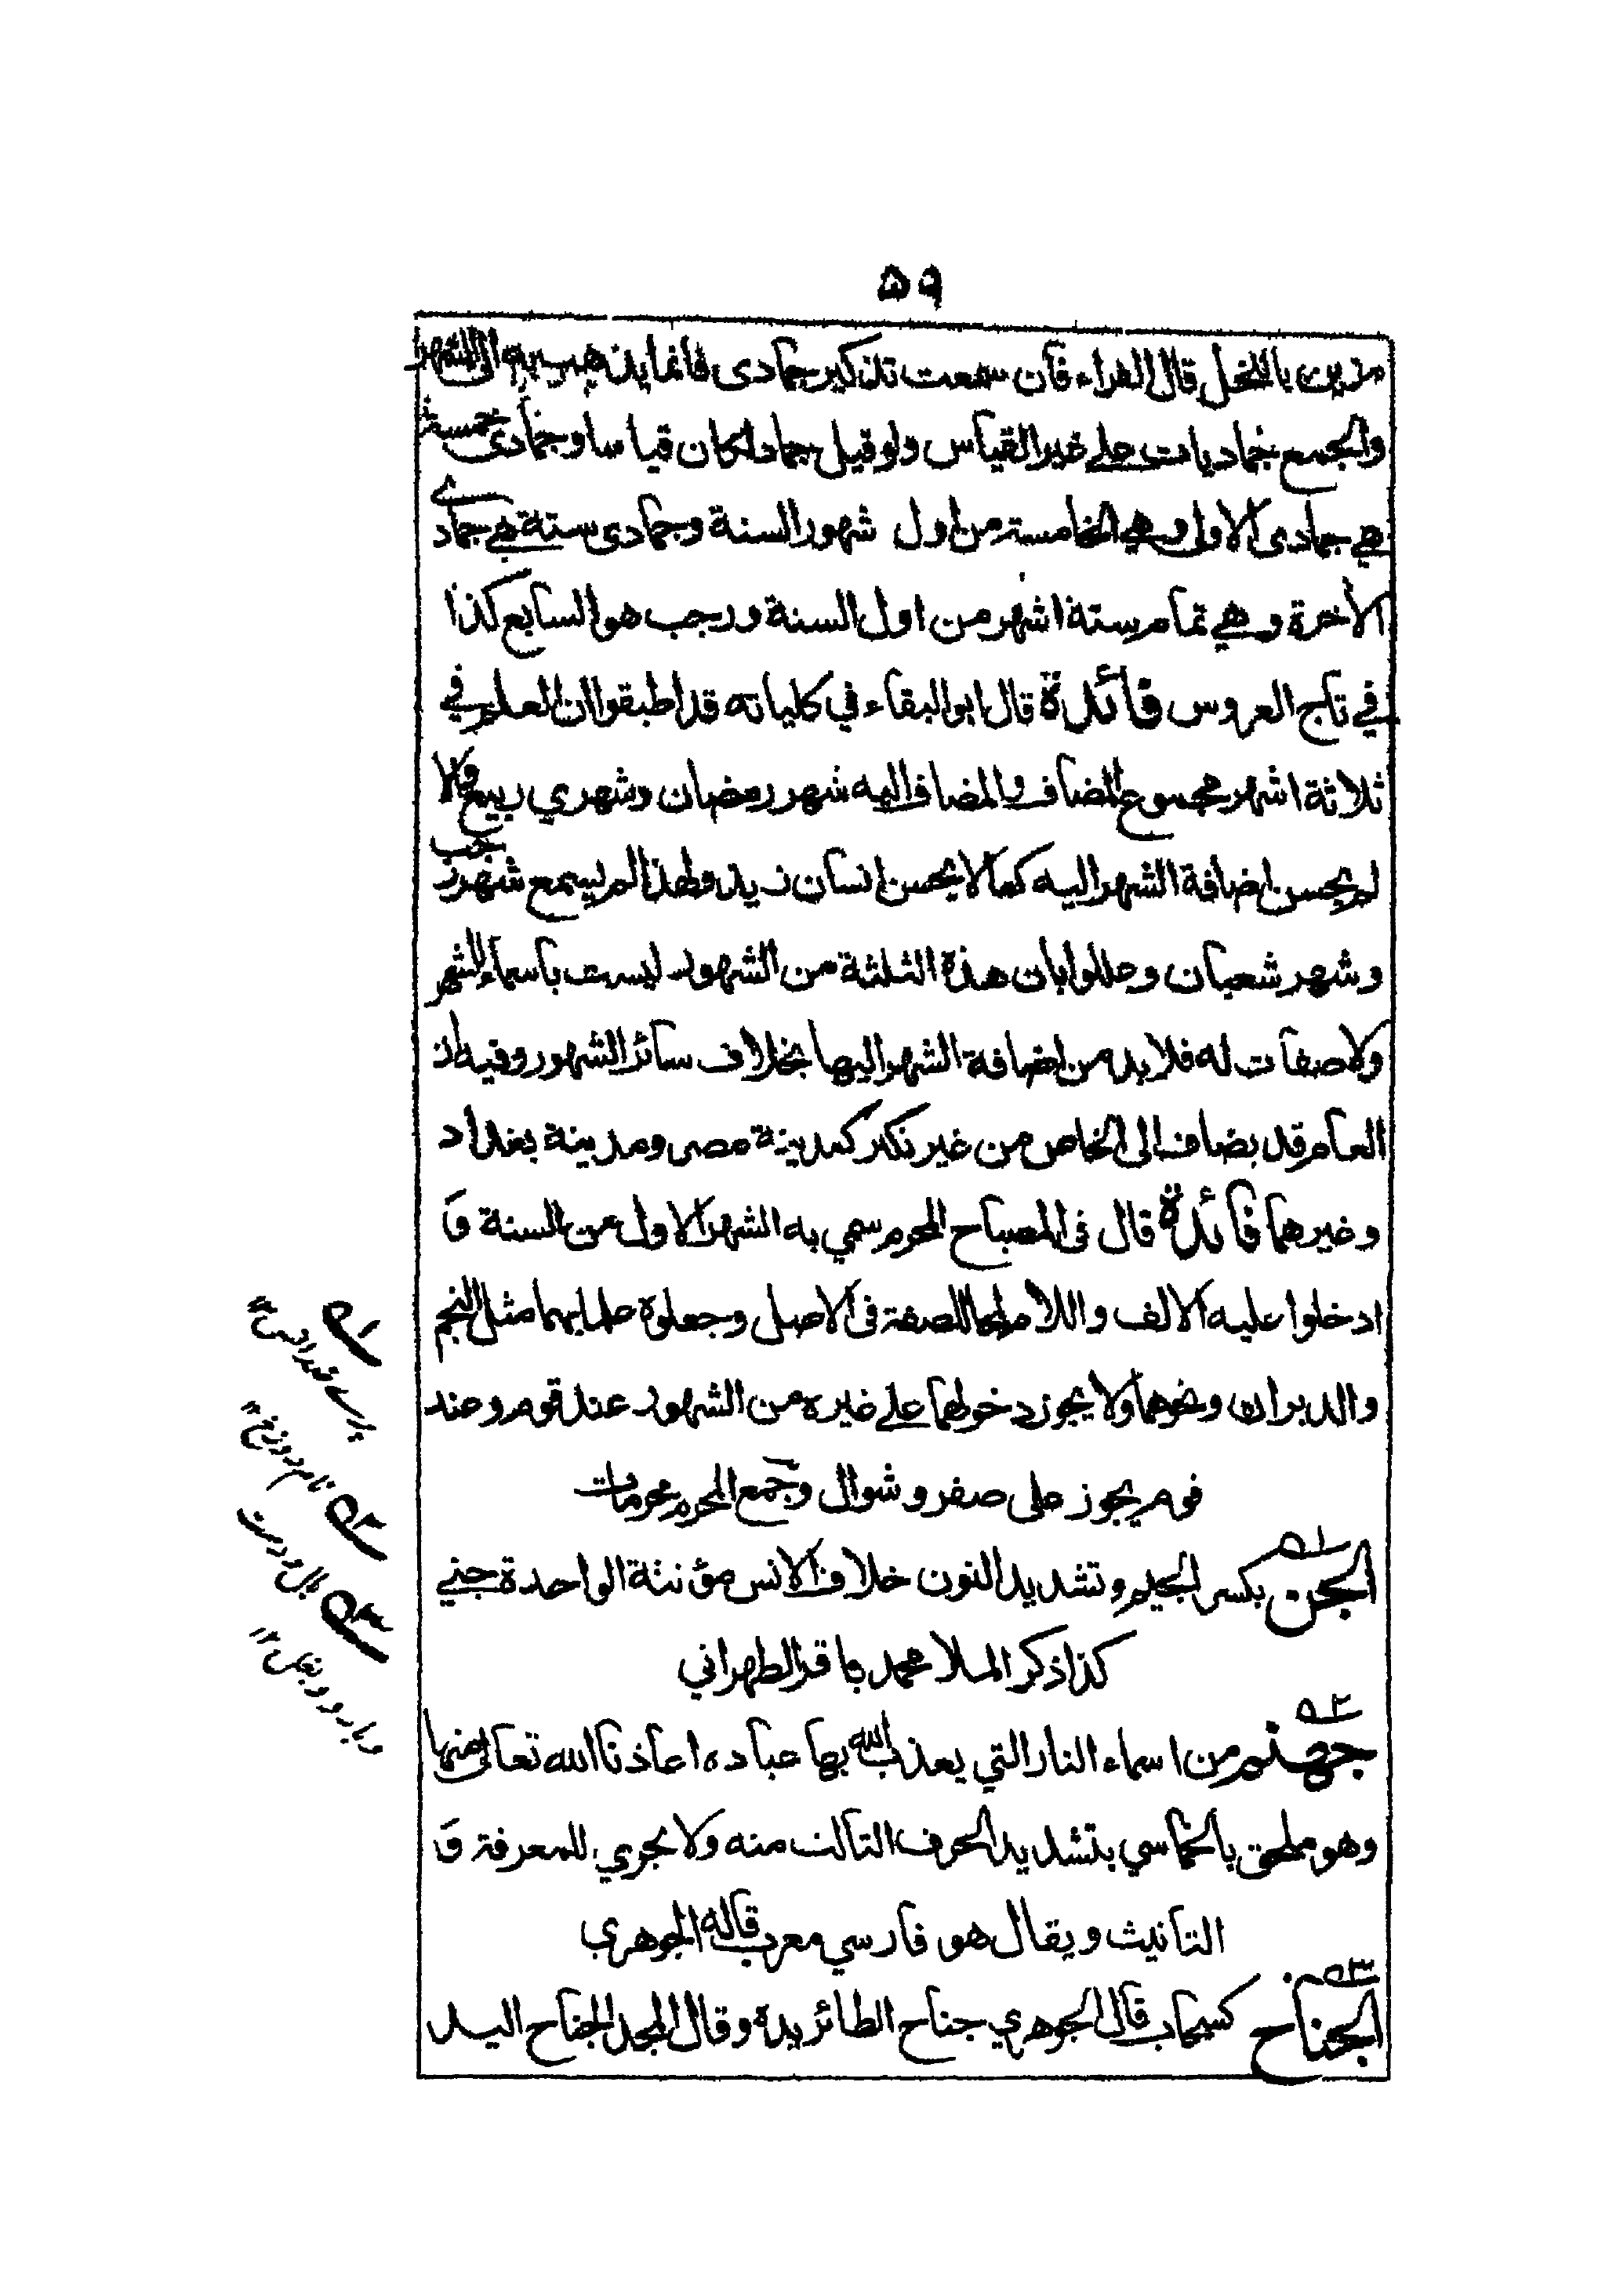 ٥٩
مزين بالنخل قال الفراء فان سمعت تذكير جمادى فانما يذهب به الى الشهر
والجمع جماديات على غير القياس ولو قيل جماد لكان قياسا وجمادى خمسة
هي جمادى الاولى وهي الخامسة من اول شهور السنة وجمادى ستة هي جمادى
الاخرة وهي تمام ستة اشهر من اول السنة ورجب هو السابع كذا
في تاج العروس فائدة قال ابو البقاء في كلياته قد اطبقوا ان العلم في
ثلاثة اشهر مجموع المضاف والمضاف اليه شهر رمضان وشهري ربيع والا
لم يحسن اضافة الشهر اليه كما لا يحسن انسان زيد ولهذا لم يسمع شهر رجب
وشهر شعبان وعللوا بان هذة الثلثة من الشهور ليست باسماء للشهر
ولا صفات له فلا بد من اضافة الشهر اليها بخلاف سائر الشهور وفيه ان
العام قد يضاف الى الخاص من غير نكير كمدينة مصر ومدينة بغداد
وغيرهما فائدة قال فى المصباح المحرم سمي به الشهر الاول من السنة و
ادخلوا عليه الالف واللام لمحا للصفة فى الاصل وجعلوة علما بهما مثل النجم
والدبران ونحوهما ولا يجوز دخولهما على غيره من الشهور عند قوم وعند
قوم يجوز على صفر وشوال وجمع المحرم محرمات
الجن بكسر الجيم وتشديد النون خلاف الانس مؤنثة الواحدة جني
كذا ذكر الملا محمد باقر الطهراني
جهنم من اسماء النار التي يعذب الله بها عباده اعاذنا الله تعالى منها
وهو ملحق بالخماسي بتشديد الحرف الثالث منه ولا يجري للمعرفة و
التانيث ويقال هو فارسي معرب قاله الجوهري
الجناح كسحاب قال الجوهري جناح الطائر يدة وقال المجد الجناح اليد
١
٢ نام دوزخ ١٢
٣ بال ودست
وبازو وبغل ١٢